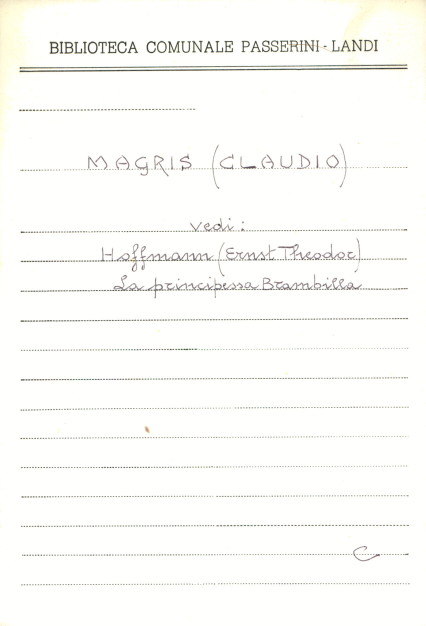 BIBLIOTECA COMUNALE PASSERINI - LANDI
MAGRIS (CLAUDIO)
vedi:
Hoffmann (Ernst Theodor)
La principessa Brambilla
C